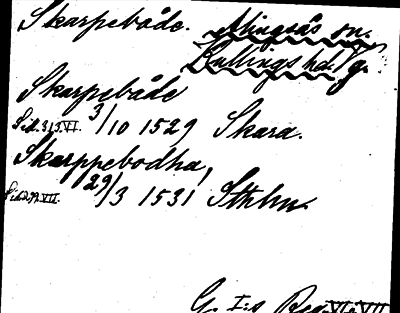 Skarpebåde. Alingsås sn.
Kullings hd. Vg.
Skarpebåde
Sid. 313. VI. 3/10 1529 Skara.
Skarppebodha,
Sid. 279. VII. 29/3 1531 Sthlm.
G. I:s Reg. VI o VII